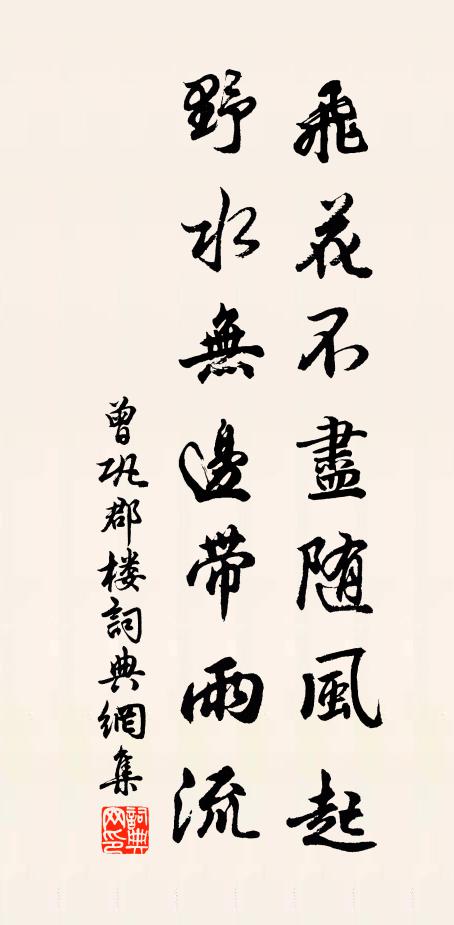 飛花不盡随風起
野水無邊帶雨流
曾巩郡楼詞典網集
詞典网印